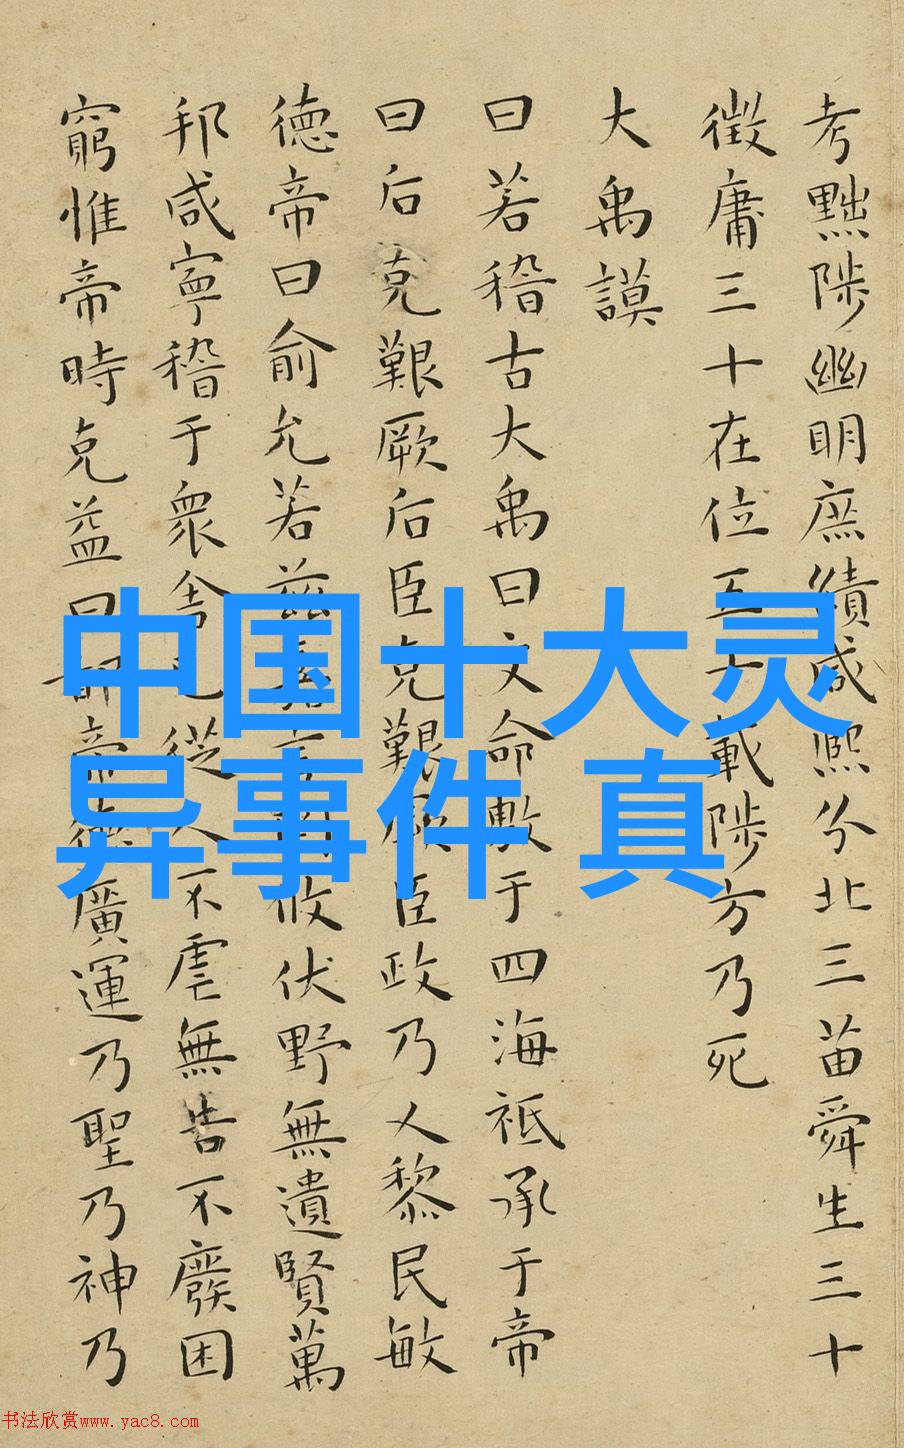 考黜陟幽明庶績咸熙分北三苗舜生三十
徵庸三十在位五十載陟方乃死
大禹謨
曰若稽古大禹曰文命敷于四海祗承于帝
曰后克艱厥后臣克艱厥臣政乃乂黎民敏
德帝曰俞允若茲嘉言罔攸伏野無遺賢萬
邦咸寧稽于衆舍己從人不虐無告不廢困
窮惟帝時克益曰都帝德廣運乃聖乃神乃
中国十大灵
异事件 真
书法欣赏www.yac8.com